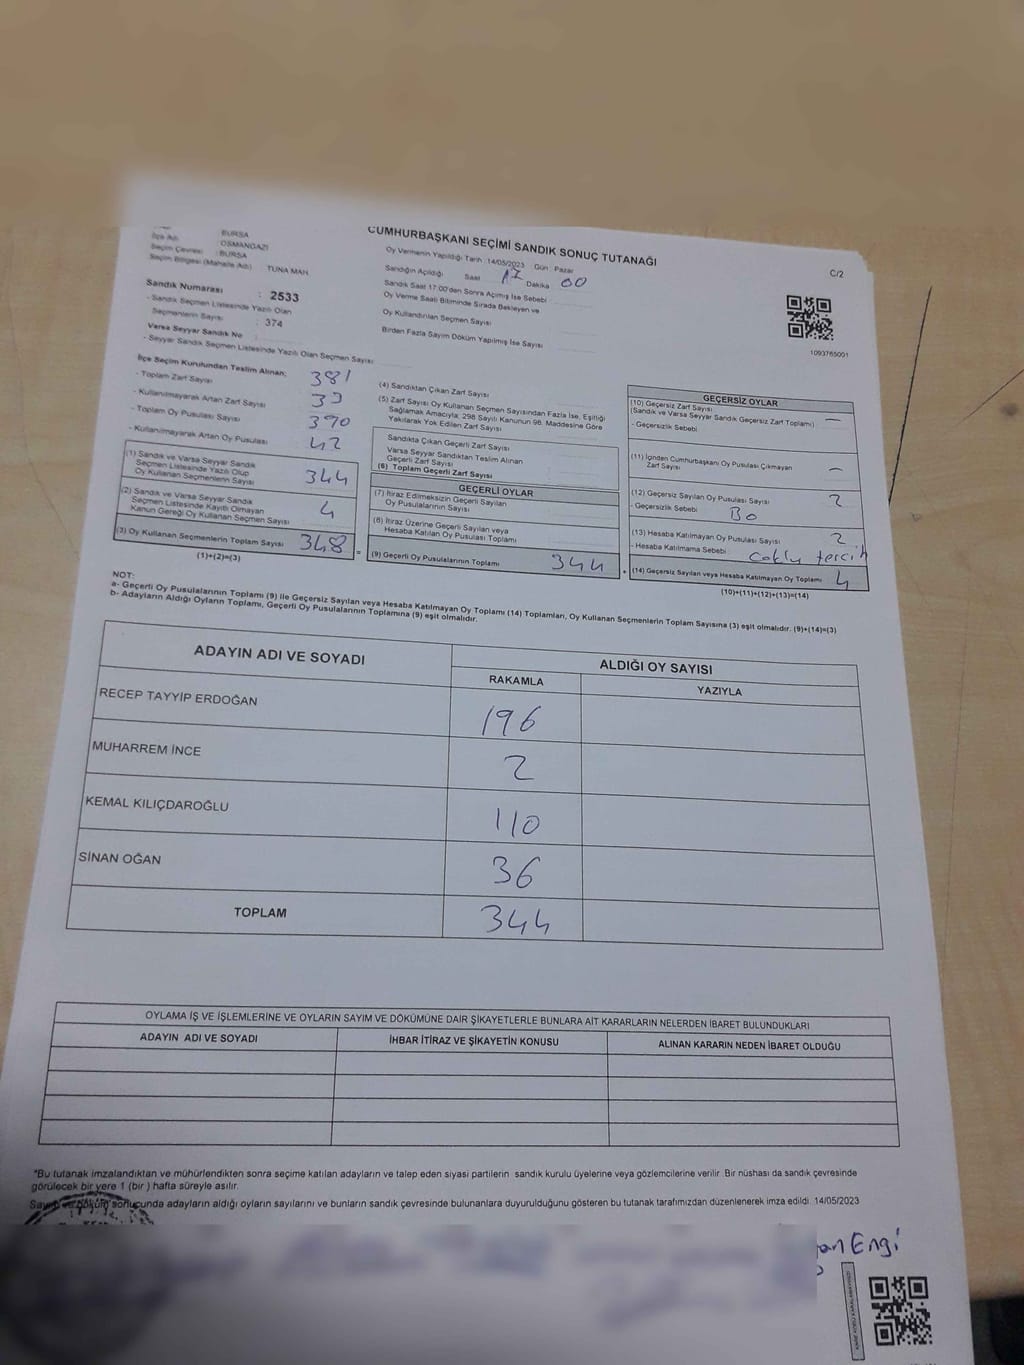 CUMHURBAŞKANI SEÇİMİ SANDIK SONUÇ TUTANAĞI
C/2
İlçe Adı : BURSA
OSMANGAZİ
Seçim Çevresi : BURSA
Seçim Bölgesi (Mahalle Adı) TUNA MAH.
Sandık Numarası : 2533
- Sandık Seçmen Listesinde Yazılı Olan
Seçmenlerin Sayısı : 374
Varsa Seyyar Sandık No
- Seyyar Sandık Seçmen Listesinde Yazılı Olan Seçmen Sayısı
Oy Vermenin Yapıldığı Tarih : 14/05/2023 Gün : Pazar
Sandığın Açıldığı Saat 17 Dakika 00
Sandık Saat 17:00'den Sonra Açılmış İse Sebebi
Oy Verme Saati Bitiminde Sırada Bekleyen ve
Oy Kullandırılan Seçmen Sayısı
Birden Fazla Sayım Döküm Yapılmış İse Sayısı
1093765001
İlçe Seçim Kurulundan Teslim Alınan;
- Toplam Zarf Sayısı 381
- Kullanılmayarak Artan Zarf Sayısı 33
- Toplam Oy Pusulası Sayısı 390
- Kullanılmayarak Artan Oy Pusulası 42
(1) Sandık ve Varsa Seyyar Sandık
Seçmen Listesinde Yazılı Olup
Oy Kullanan Seçmenlerin Sayısı 344
(2) Sandık ve Varsa Seyyar Sandık
Seçmen Listesinde Kayıtlı Olmayan
Kanun Gereği Oy Kullanan Seçmen Sayısı 4
(3) Oy Kullanan Seçmenlerin Toplam Sayısı 348
(1)+(2)=(3)
(4) Sandıktan Çıkan Zarf Sayısı
(5) Zarf Sayısı Oy Kullanan Seçmen Sayısından Fazla İse, Eşitliği
Sağlamak Amacıyla; 298 Sayılı Kanunun 98. Maddesine Göre
Yakılarak Yok Edilen Zarf Sayısı
Sandıkta Çıkan Geçerli Zarf Sayısı
Varsa Seyyar Sandıktan Teslim Alınan
Geçerli Zarf Sayısı
(6) Toplam Geçerli Zarf Sayısı
GEÇERLİ OYLAR
(7) İtiraz Edilmeksizin Geçerli Sayılan
Oy Pusulalarının Sayısı
(8) İtiraz Üzerine Geçerli Sayılan veya
Hesaba Katılan Oy Pusulası Toplamı
= (9) Geçerli Oy Pusulalarının Toplamı 344 +
GEÇERSİZ OYLAR
(10) Geçersiz Zarf Sayısı
(Sandık ve Varsa Seyyar Sandık Geçersiz Zarf Toplamı) —
- Geçersizlik Sebebi
(11) İçinden Cumhurbaşkanı Oy Pusulası Çıkmayan
Zarf Sayısı —
(12) Geçersiz Sayılan Oy Pusulası Sayısı 2
- Geçersizlik Sebebi Bo
(13) Hesaba Katılmayan Oy Pusulası Sayısı 2
- Hesaba Katılmama Sebebi Coklu tercih
(14) Geçersiz Sayılan veya Hesaba Katılmayan Oy Toplamı 4
(10)+(11)+(12)+(13)=(14)
NOT:
a- Geçerli Oy Pusulalarının Toplamı (9) ile Geçersiz Sayılan veya Hesaba Katılmayan Oy Toplamı (14) Toplamları, Oy Kullanan Seçmenlerin Toplam Sayısına (3) eşit olmalıdır. (9)+(14)=(3)
b- Adayların Aldığı Oyların Toplamı, Geçerli Oy Pusulalarının Toplamına (9) eşit olmalıdır.
ADAYIN ADI VE SOYADI ALDIĞI OY SAYISI
RAKAMLA YAZIYLA
RECEP TAYYİP ERDOĞAN 196
MUHARREM İNCE 2
KEMAL KILIÇDAROĞLU 110
SİNAN OĞAN 36
TOPLAM 344
OYLAMA İŞ VE İŞLEMLERİNE VE OYLARIN SAYIM VE DÖKÜMÜNE DAİR ŞİKAYETLERLE BUNLARA AİT KARARLARIN NELERDEN İBARET BULUNDUKLARI
ADAYIN ADI VE SOYADI İHBAR İTİRAZ VE ŞİKAYETİN KONUSU ALINAN KARARIN NEDEN İBARET OLDUĞU
"Bu tutanak imzalandıktan ve mühürlendikten sonra seçime katılan adayların ve talep eden siyasi partilerin sandık kurulu üyelerine veya gözlemcilerine verilir. Bir nüshası da sandık çevresinde
görülecek bir yere 1 (bir ) hafta süreyle asılır.
Sayım ve döküm sonucunda adayların aldığı oyların sayılarını ve bunların sandık çevresinde bulunanlara duyurulduğunu gösteren bu tutanak tarafımızdan düzenlenerek imza edildi. 14/05/2023
Engi